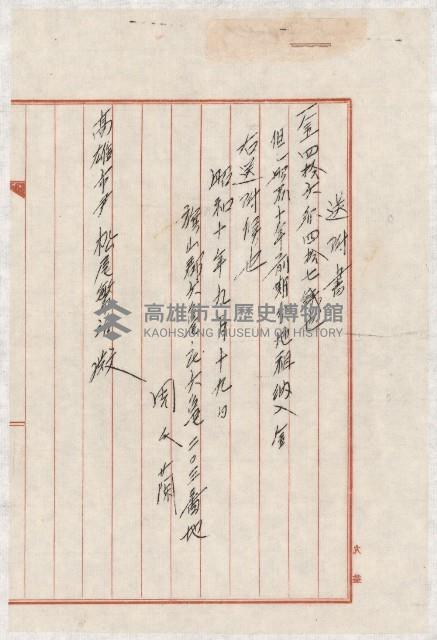 送附書
一金四拾六円四拾七銭也
但一昭和十年前期分地租納入金
右送附候也
昭和十年九月十九日
旗山郡六龜庄六龜二〇三番地
周人蘭
高雄市尹松尾繁治殿
高雄市立歷史博物館
KAOHSIUNG MUSEUM OF HISTORY